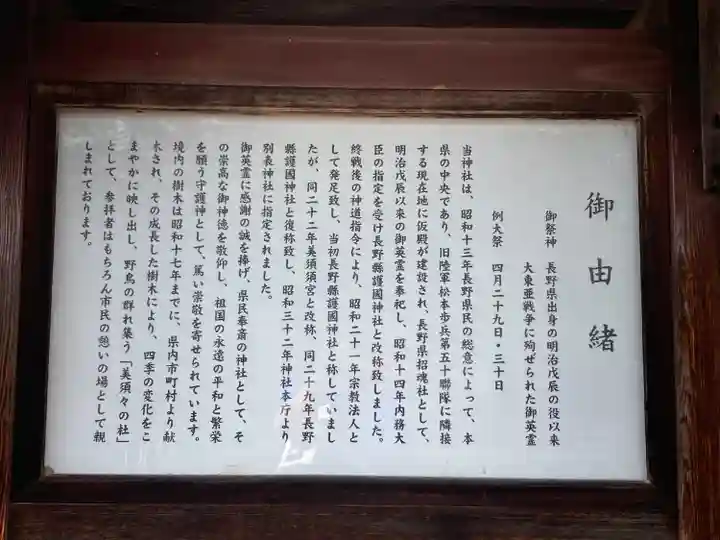 御由緒
御祭神 長野県出身の明治戊辰の役以来
大東亜戦争に殉ぜられた御英霊
例大祭 四月二十九日・三十日
当神社は、昭和十三年長野県民の総意によって、本
県の中央であり、旧陸軍松本歩兵第五十聯隊に隣接
する現在地に仮殿が建設され、長野県招魂社として、
明治戊辰以来の御英霊を奉祀し、昭和十四年内務大
臣の指定を受け長野縣護國神社と改称致しました。
終戦後の神道指令により、昭和二十一年宗教法人と
して発足致し、当初長野縣護國神社と称していまし
たが、同二十二年美須須宮と改称、同二十九年長野
縣護國神社と復称致し、昭和三十二年神社本庁より
別表神社に指定されました。
御英霊に感謝の誠を捧げ、県民奉斎の神社として、そ
の崇高な御神徳を敬仰し、祖国の永遠の平和と繁栄
を願う守護神として、篤い崇敬を寄せられています。
境内の樹木は昭和十七年までに、県内市町村より献
木され、その成長した樹木により、四季の変化をこ
まやかに映し出し、野鳥の群れ集う「美須々の杜」
として、参拝者はもちろん市民の憩いの場として親
しまれております。